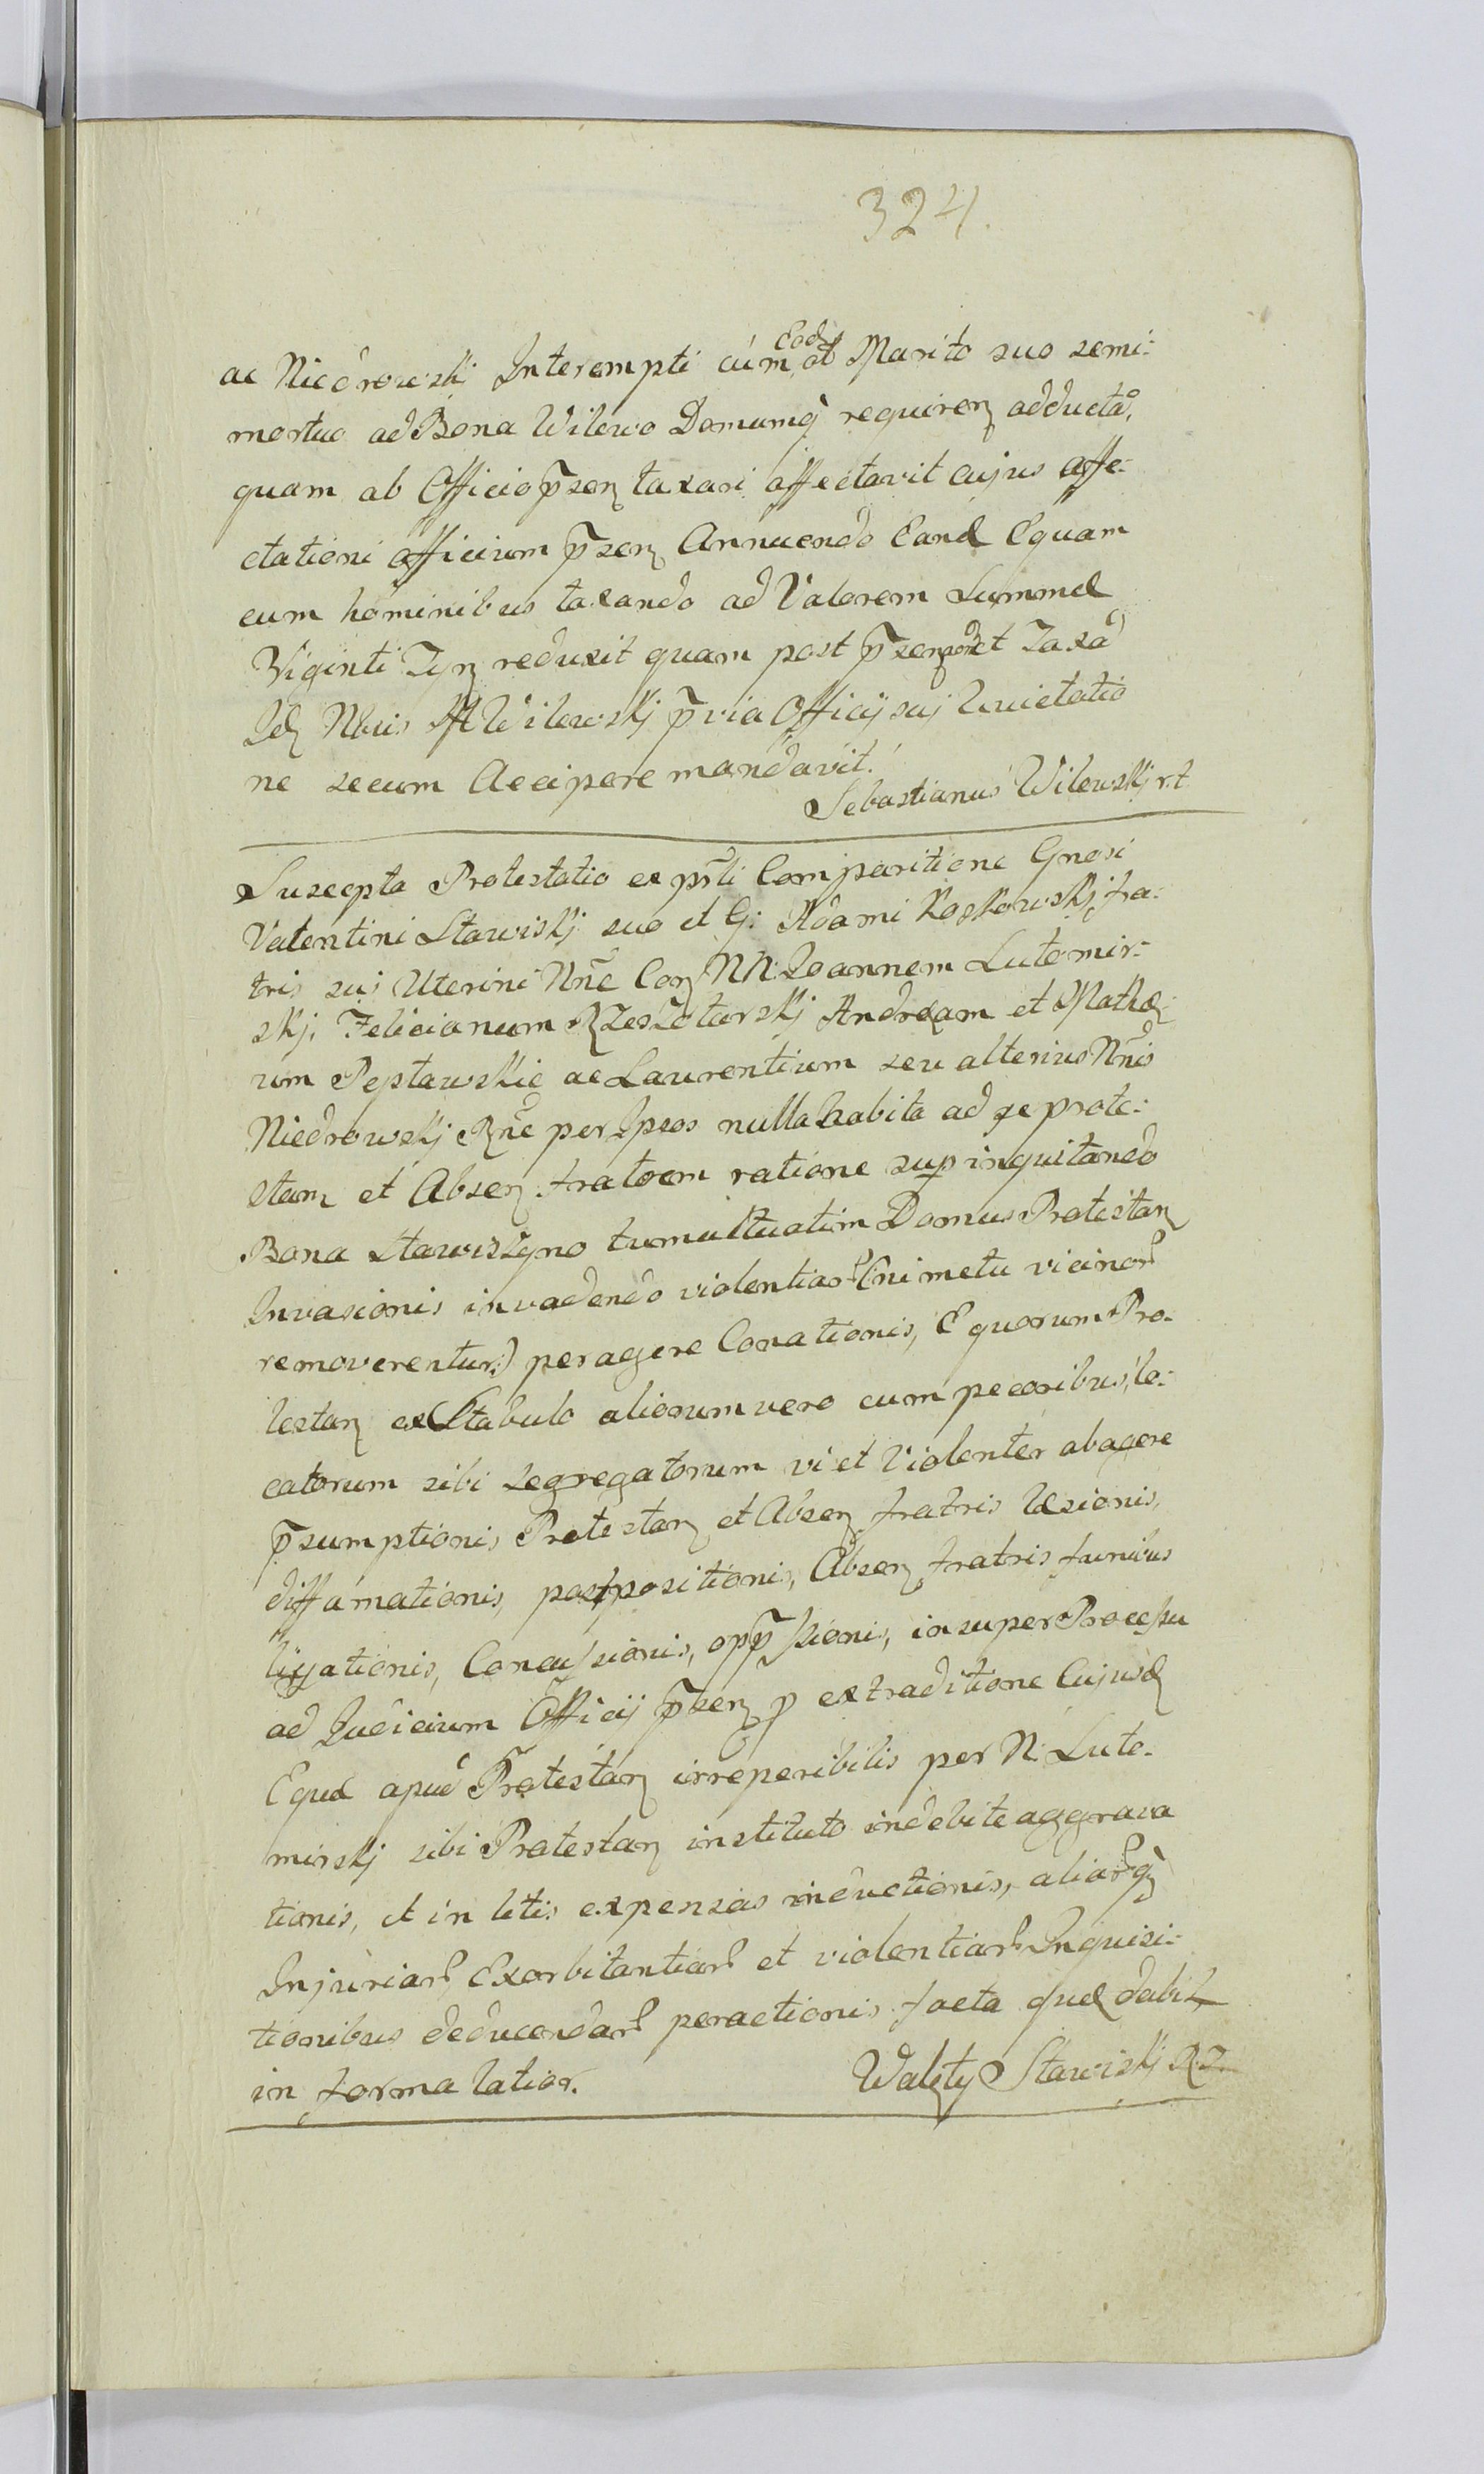 324.
ac Niedrowskj Interempti cum Eod ot Marito suo semi-
mortuo ad Bona Wilowo Domumq̀ requiren adducta,
quam ab Officio p̄sen taxari affectavit cujus affe-
ctationi officium p̄sen Annuendo Eand Equam
cum hominibus taxando ad Valorem Summæ
Viginti Tÿn reduxit quam post p̄sen Taxã
Id Nbus M Wilowskj p̄via Officij suj Quietatio
ne secum Accipere mandavit.
Sebastianus Wilowskj r.t
Suscepta Protestatio ex pr̃li Comparitione Gnosi
Valentini Stawiskj suo et G: Adami Koskowskj fra-
tris sui Uterini Nñe Con NN: Joannem Lutomir-
skj, Felicianum Rzeszotarskj Andream et Mathæ-
um Peptawskie ac Laurentium seu alterius Nñis
Niedrowskj Rñe per Ipsos nulla habita ad se prote-
stan et Absen fratrem ratione sup inquitando
Bona Stawiszyno tumultuatim Domus Protestan
Invasionis invadendo violentiar (ni metu vicinor
removerentur) peragere Conationis, Equorum Pro-
testan ex Stabulo aliorum vero cum pecoribus, lo-
catorum sibi segregatorum vi et Violenter abagere
p̄sumptionis Protestan et Absen fratris læsionis,
diffamationis, postpositionis, Absen fratris funibus
ligationis, Concussionis, opp̄ssionis, insuper Processu
ad Judicium Officij p̄sen p extraditione Cujusd
Equæ apud Protestan irreperibilis per N: Luto-
mirskj sibi Protestan instituto indebite aggrava
tionis, et in litis expensas inductionis, aliarq̀
Injuriar, Exorbitantiar et violentiar Inquisi-
tionibus deducendar peractionis facta quæ dabit
in forma latior.
Walęty Stawiskj